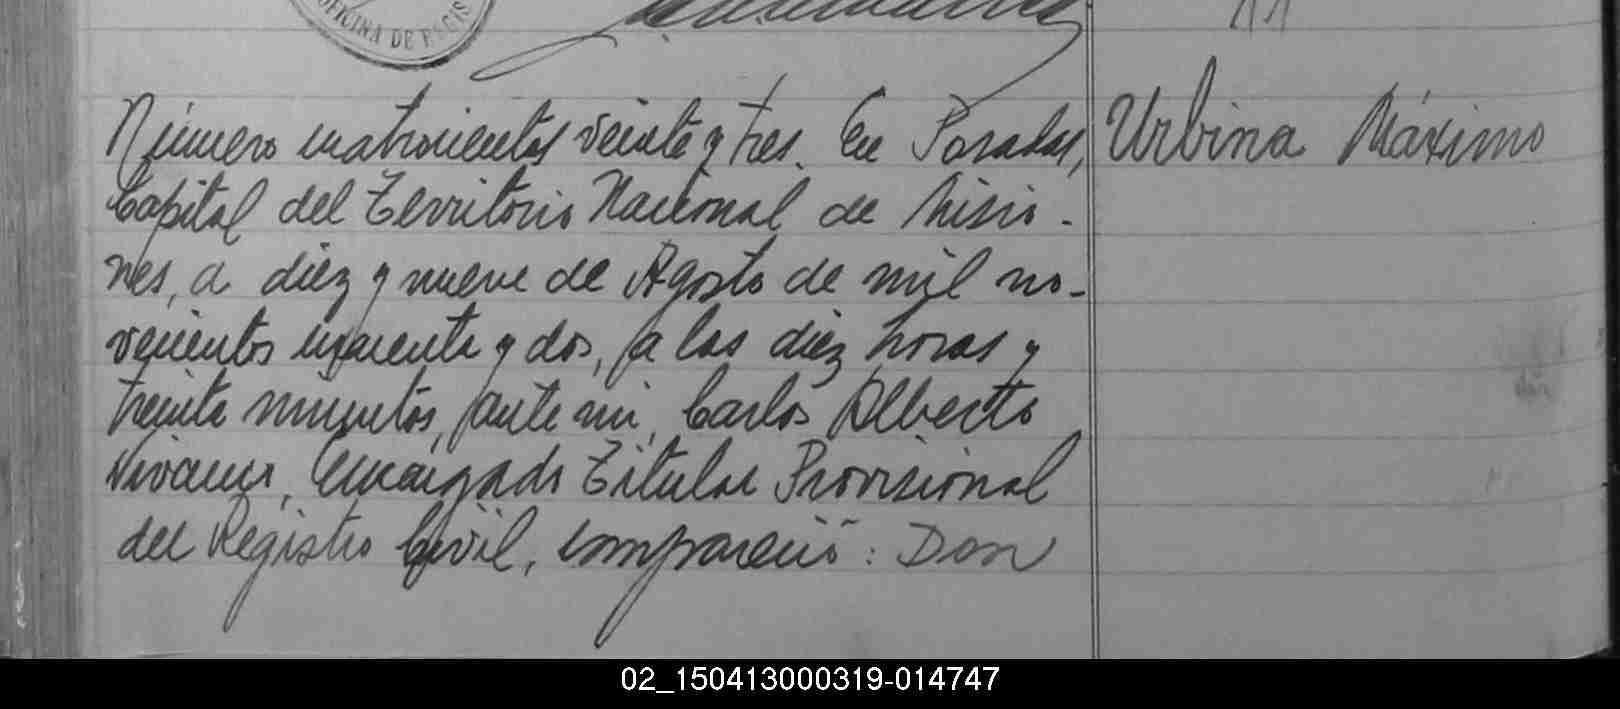 OFICINA DE REGIS
Número cuatrocientos veinte y tres. En Posadas,
Urbina Máximo
Capital del Territorio Nacional de Misio-
nes, a diez y nueve de Agosto de mil no-
vecientos cuarenta y dos, a las diez horas y
treinta minutos, ante mi, Carlos Alberto
Encargado Titular Provisional
del Registro Civil, compareció: Don
02_150413000319-014747